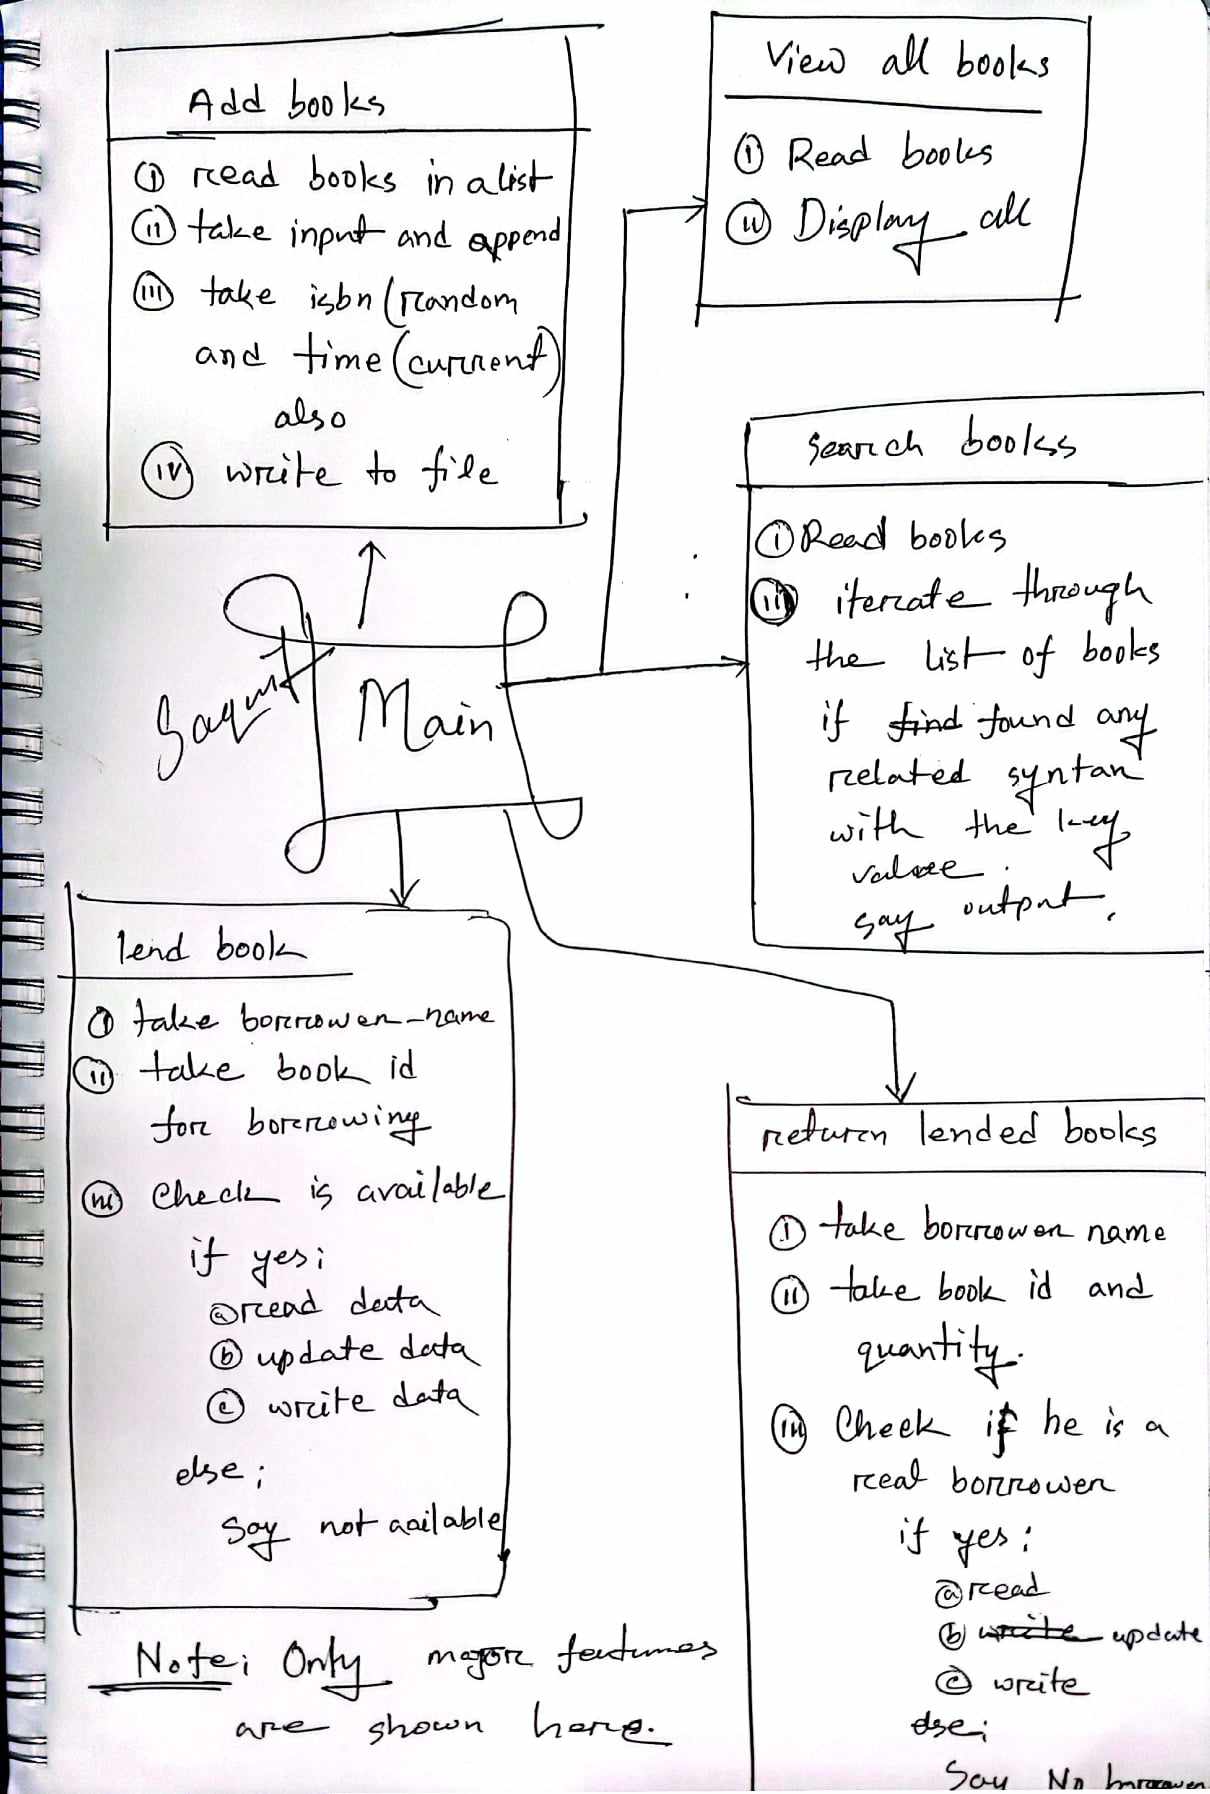 Add books
(i) read books in a list
(ii) take input and append
(iii) take isbn (random
and time (current)
also
(iv) write to file
View all books
(i) Read books
(ii) Display all
Search bookss
(i) Read books
(ii) iterate through
the list of books
if find found any
related syntax
with the key
value.
say output.
Main
lend book
(i) take borrower-name
(ii) take book id
for borrowing
(iii) Check is available
if yes;
(a) read data
(b) update data
(c) write data
else;
Say not aailable
return lended books
(i) take borrower name
(ii) take book id and
quantity.
(iii) Check if he is a
real borrower
if yes:
(a) read
(b) write update
(c) write
else;
Say No borrower
Note: Only major features
are shown here.